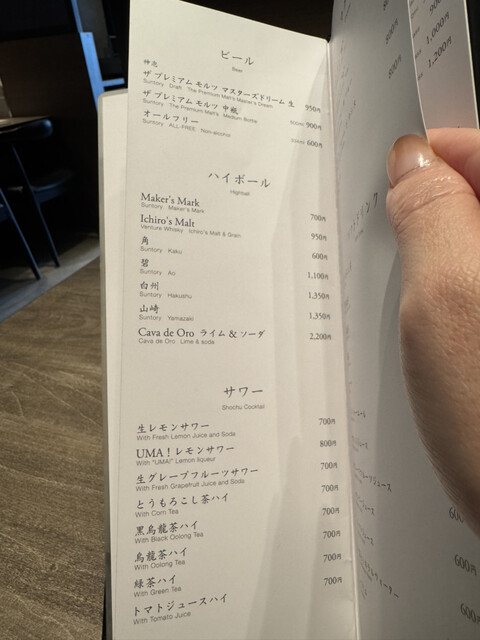 ビール
Beer
神泡
ザ プレミアム モルツ マスターズドリーム 生 950円
Suntory Draft The Premium Malt's Master's Dream
ザ プレミアム モルツ 中瓶 900円
Suntory The Premium Malt's Medium Bottle
オールフリー 600円
Suntory ALL-FREE Non-alcohol
ハイボール
Highball
Maker's Mark 700円
Suntory Maker's Mark
Ichiro's Malt 950円
Venture Whisky Ichiro's Malt & Grain
角 600円
Suntory Kaku
碧 1,100円
Suntory Ao
白州 1,350円
Suntory Hakushu
山崎 1,350円
Suntory Yamazaki
Cava de Oro ライム&ソーダ 2,200円
Cava de Oro Lime & soda
サワー
Shochu Cocktail
生レモンサワー 700円
With Fresh Lemon Juice and Soda
UMA!レモンサワー 800円
With "UMA!" Lemon liqueur
生グレープフルーツサワー 700円
With Fresh Grapefruit Juice and Soda
とうもろこし茶ハイ 700円
With Corn Tea
黒烏龍茶ハイ 700円
With Black Oolong Tea
烏龍茶ハイ 700円
With Oolong Tea
緑茶ハイ 700円
With Green Tea
トマトジュースハイ 700円
With Tomato Juice
900円
800円
900円
1,000円
1,200円
600円
600円
600円